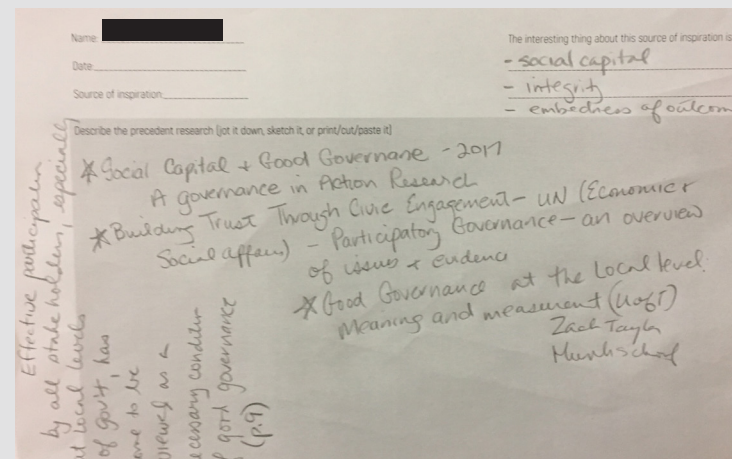 Name:
Date
Source of inspiration:
The interesting thing about this source of inspiration is
- social capital
- integrity
- embedness of outcom
Describe the precedent research (jot it down, sketch it, or print/cut/paste it)
* Social Capital + Good Governane - 2017
A governance in Action Research
* Building Trust Through Civic Engagement - UN (Economic +
Social affairs) - Participatory Governance - an overview
of issues + evidence
* Good Governance at the Local level:
Meaning and measurment (UofT)
Zack Taylor
Munk school
Effective participation
by all stakeholders, especially
at Local levels
of gov't, has
ome to be
viewed as a
ecessary condition
f good governance
(p.9)